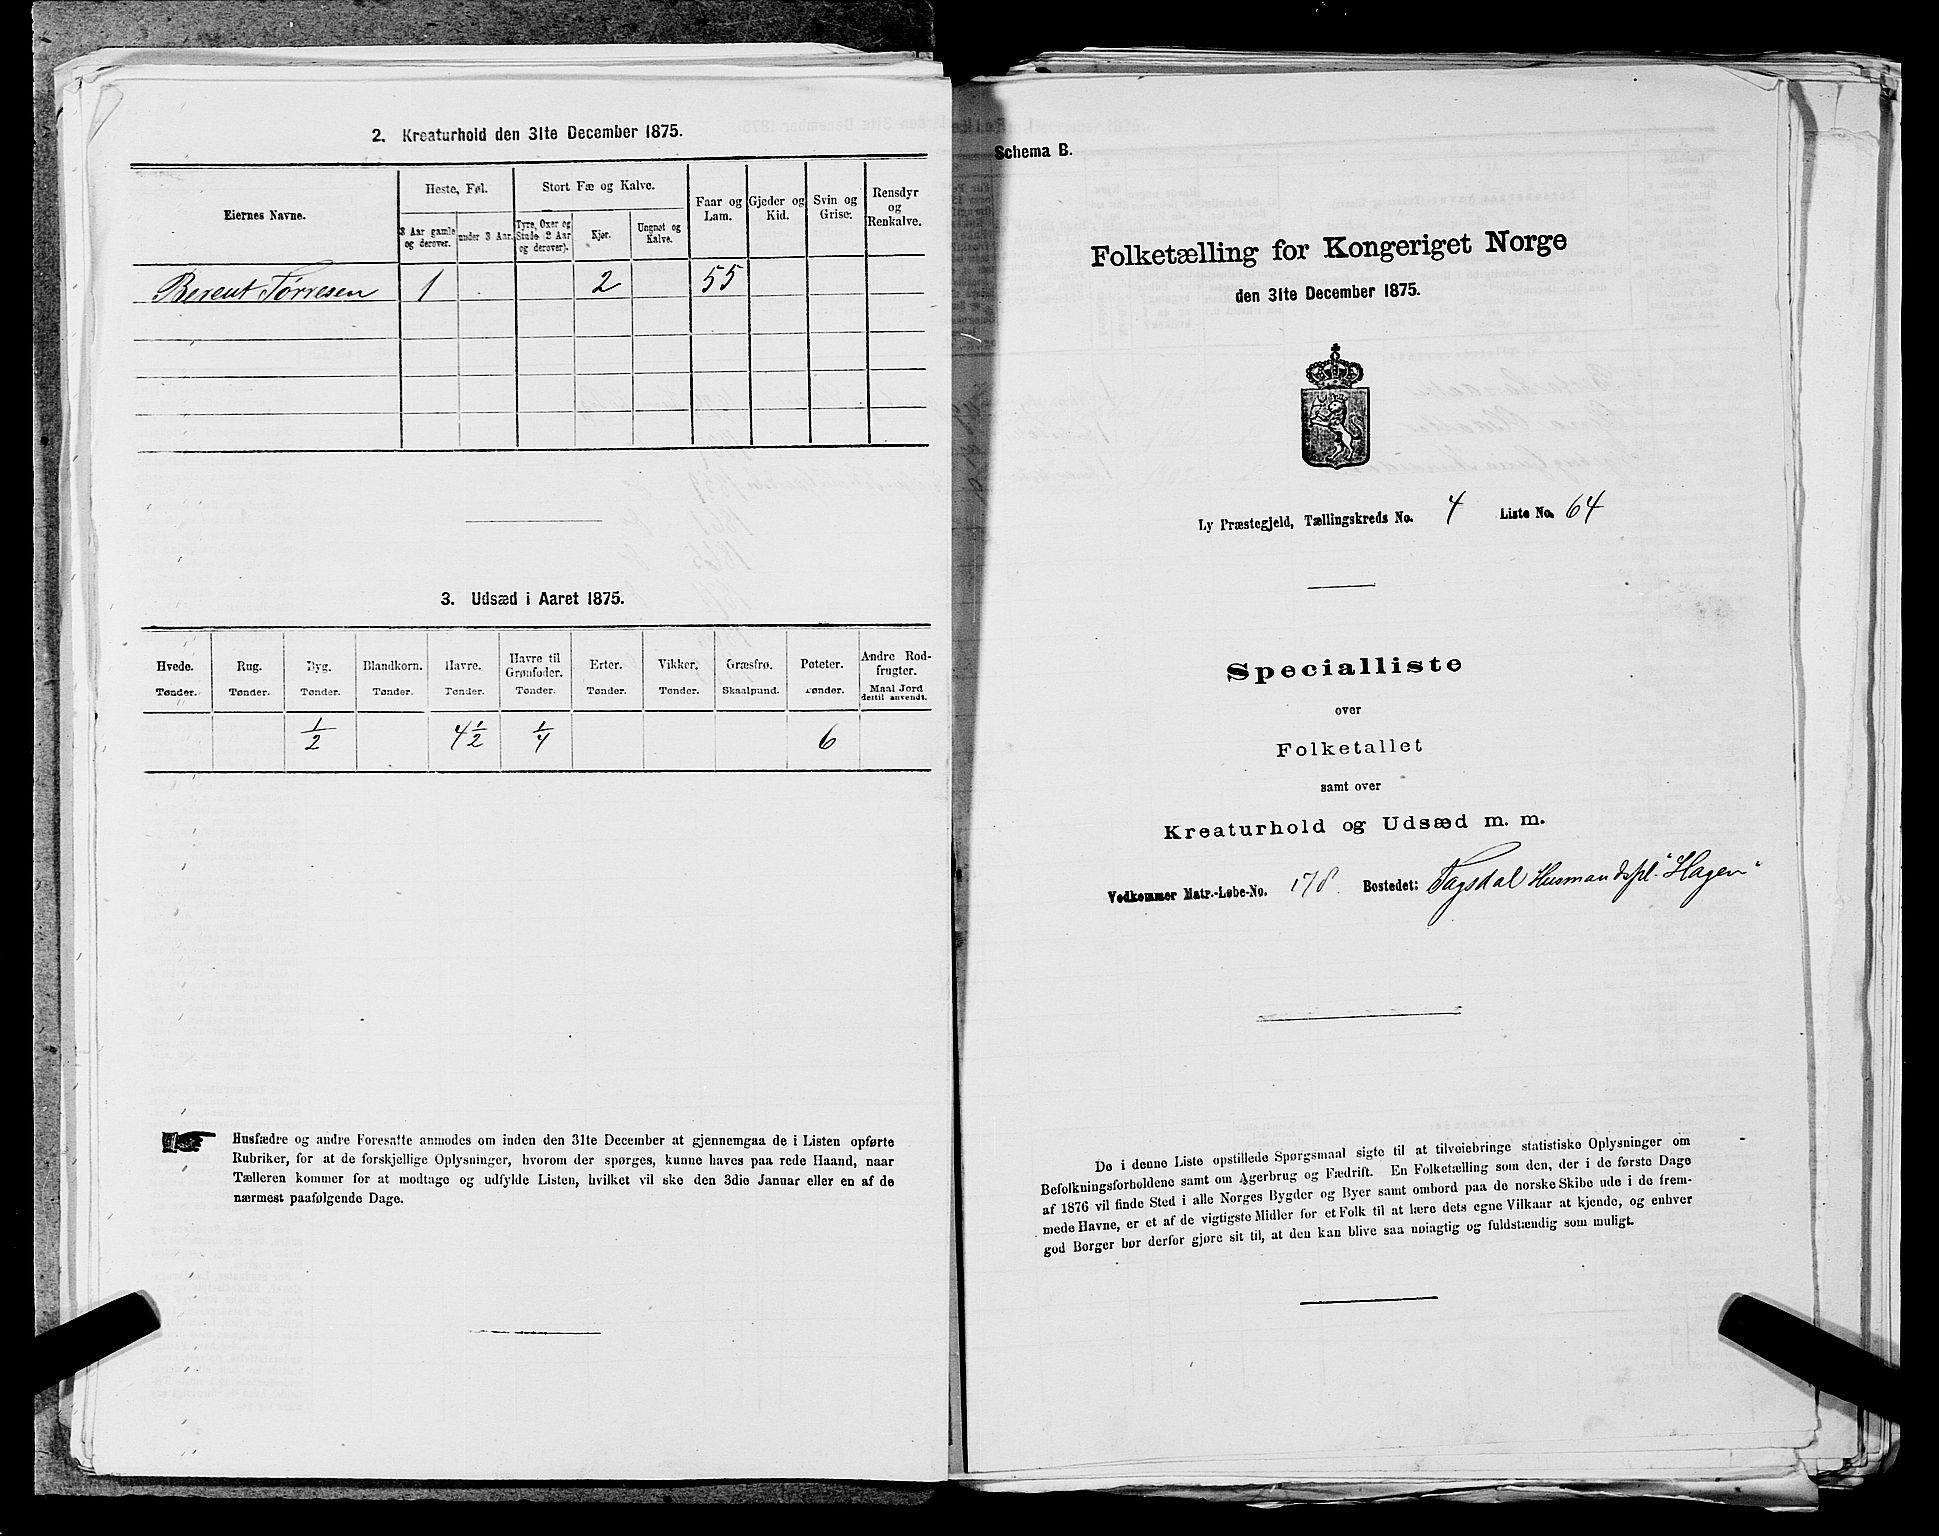 2. Kreaturhold den 31te December 1875.
Eiernes Navne.
Heste, Føl.
Stort Fæ og Kalve.
Faar og Lam.
Gjeder og Kid.
Svin og Grise.
Rensdyr og Renkalve.
3 Aar gamle og derover.
under 3 Aar.
Tyre, Oxer og Stude 2 Aar og derover).
Kjør.
Ungnøt og Kalve.
Berent Torresen 1 2 55
3. Udsæd i Aaret 1875.
Hvede. Rug. Byg. Blandkorn. Havre. Havre til Grønfoder. Erter. Vikker. Græsfrø. Poteter. Andre Rodfrugter.
Tønder. Tønder. Tønder. Tønder. Tønder. Tønder. Tønder. Tønder. Skaalpund. Tønder. Maal Jord dertil anvendt.
1/2 4 1/2 1/4 6
Husfædre og andre Foresatte anmodes om inden den 31te December at gjennemgaa de i Listen opførte
Rubriker, for at de forskjellige Oplysninger, hvorom der spørges, kunne haves paa rede Haand, naar
Tælleren kommer for at modtage og udfylde Listen, hvilket vil ske den 3die Januar eller en af de
nærmest paafølgende Dage.
Schema B.
Folketælling for Kongeriget Norge
den 31te December 1875.
Ly Præstegjeld, Tællingskreds No. 4 Liste No. 64
Specialliste
over
Folketallet
samt over
Kreaturhold og Udsæd m. m.
Vedkommer Matr.-Løbe-No. 178. Bostedet: Tagsdal Husmandspl. "Hagen"
De i denne Liste opstillede Spørgsmaal sigte til at tilveiebringe statistiske Oplysninger om
Befolkningsforholdene samt om Agerbrug og Fædrift. En Folketælling som den, der i de første Dage
af 1876 vil finde Sted i alle Norges Bygder og Byer samt ombord paa de norske Skibe ude i de frem-
mede Havne, er et af de vigtigste Midler for et Folk til at lære dets egne Vilkaar at kjende, og enhver
god Borger bør derfor gjøre sit til, at den kan blive saa nøiagtig og fuldstændig som muligt.